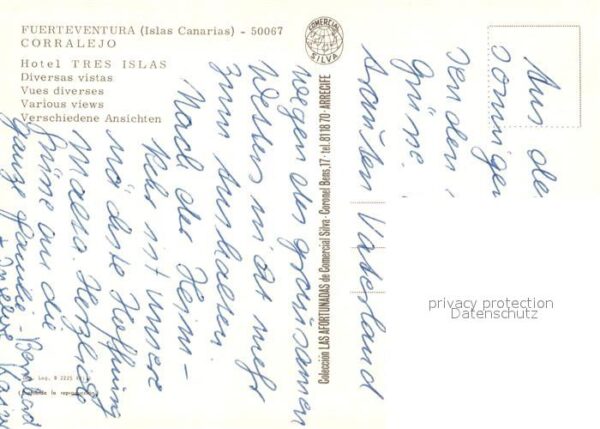 FUERTEVENTURA (Islas Canarias) - 50067
CORRALEJO
Hotel TRES ISLAS
Diversas vistas
Vues diverses
Various views
Verschiedene Ansichten
COMERCIAL
SILVA
Colección LAS AFORTUNADAS de Comercial Silva - Coronel Bens, 17 - tel. 811870 - ARRECIFE
Aus de
sonnigen
senden
Grüne
Vaterland
wegen des grausamen
Wetters nicht mehr
zum Aushalten.
Nach der Heim-
kehr ist unsere
nächste Hoffnung
Malta. Herzliche
Grüsse an die
ganze Familie - Bernhard
privacy protection
Datenschutz